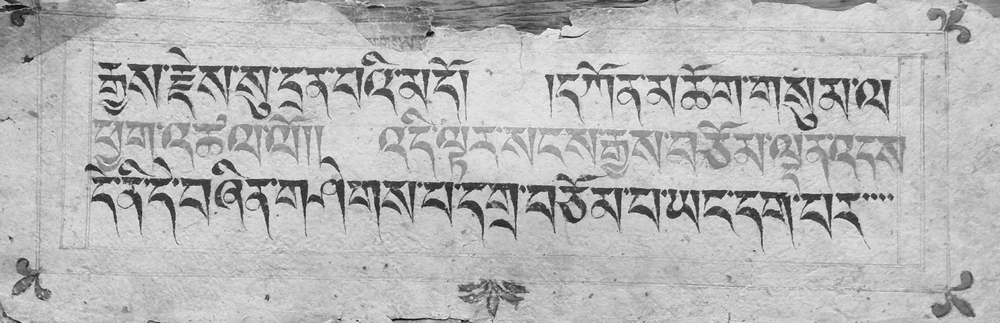 རྒྱས་རྗེས་སུ་དྲན་པའི་མདོ། །དཀོན་མཆོག་གསུམ་ལ་
ཕྱག་འཚལ་ལོ།། འདི་ལྟར་སངས་རྒྱས་བཅོམ་ལྡན་འདས་
དེ་ནི་དེ་བཞིན་གཤེགས་པ་དགྲ་བཅོམ་པ་ཡང་དག་པར་